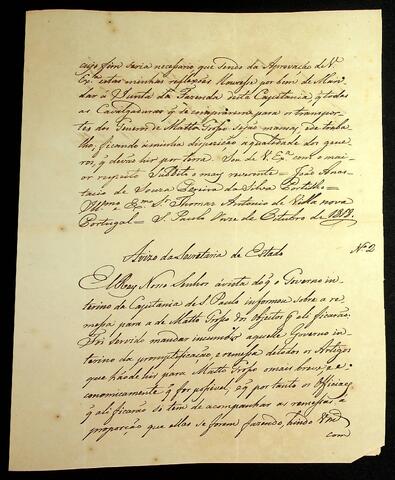 cujo fim seria necessario que sendo da Aprovação de V.
Ex.ª estas minhas reflexões houvesse por bem de Man-
dar á Junta da Fazenda desta Capitania q̃ todas
as Cavalgaduras q̃ se comprarem para o transpor-
tes dos Generos de Matto Grosso sejão mansas de traba-
lho, ficando á minha disposição a qualidade dos gene-
ros, q̃ devão hir por terra. Sou de V. Ex.ª com o mai-
or respeito Subdito o mais reverente = João Anas-
tacio de Souza Pereira da Silva Portilho =
Ill.mo e Ex.mo Sr. Thomaz Antonio de Villa nova
Portugal = S. Paulo Onze de Outubro de 1818.
Avizo da Secretaria de Estado
Nº 2
El Rey Nosso Senhor á vista do q̃ o Governo in-
terino da Capitania de S. Paulo informou sobre a re-
messa para a de Matto Grosso dos objectos q̃ ali ficarão:
Foi servido mandar incumbir aquelle Governo in-
terino da promptificação, e remessa de todos os Artigos
que hão de hir para Matto Grosso o mais breve, e e-
conomicamente q̃ for possivel; e q̃ por tanto os Officiaes
q̃ ali ficarão só tem de acompanhar as remessas á
proporção que ellas se forem fazendo, hindo
com